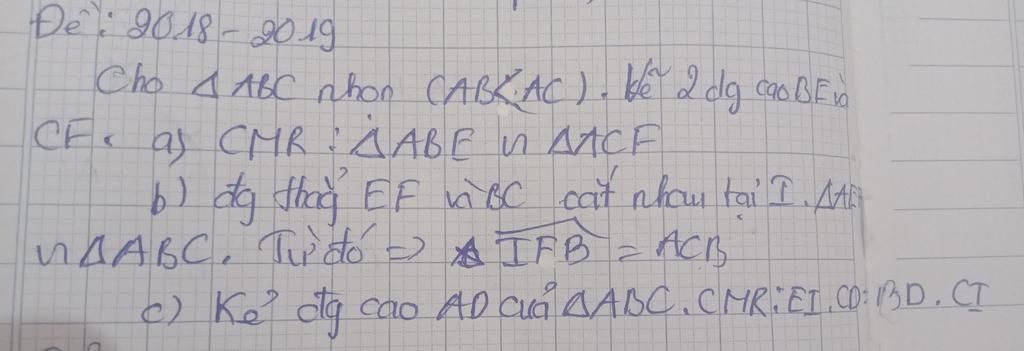 Đề: 2018 - 2019
Cho Δ ABC nhọn (AB<AC). Kẻ 2 đg cao BE và
CF. a) CMR: ΔABE ∽ ΔACF
b) đg thẳg EF và BC cắt nhau tại I. ΔAEF
∽ ΔABC. Từ đó => IFB = ACB
c) Kẻ đg cao AD của ΔABC. CMR: EI.CD=BD.CI